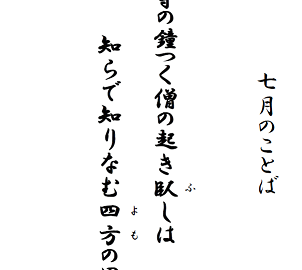 七月のことば
の鐘つく僧の起き臥しは
ふ
知らで知りなむ四方の
よも